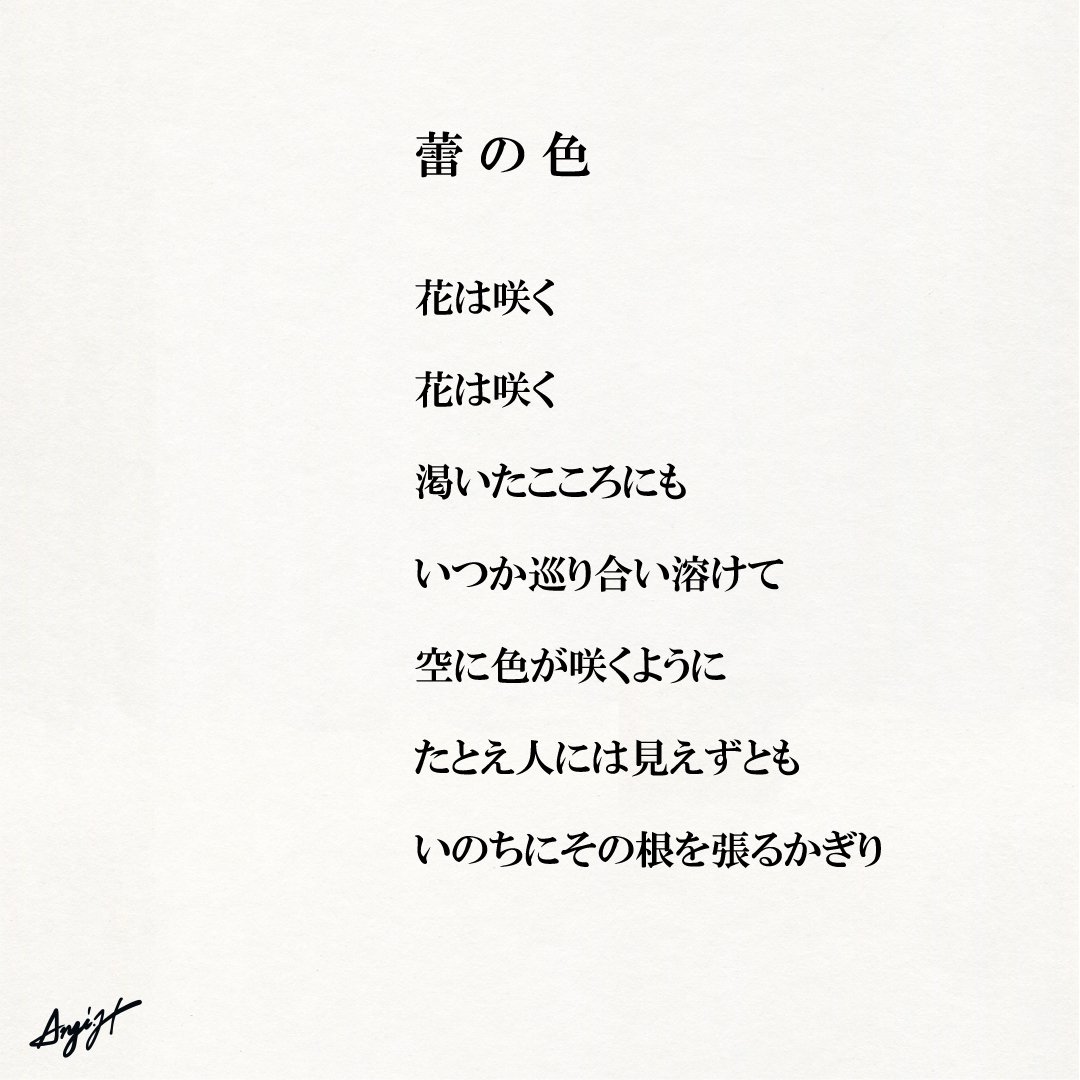 蕾の色
花は咲く
花は咲く
渇いたこころにも
いつか巡り合い溶けて
空に色が咲くように
たとえ人には見えずとも
いのちにその根を張るかぎり